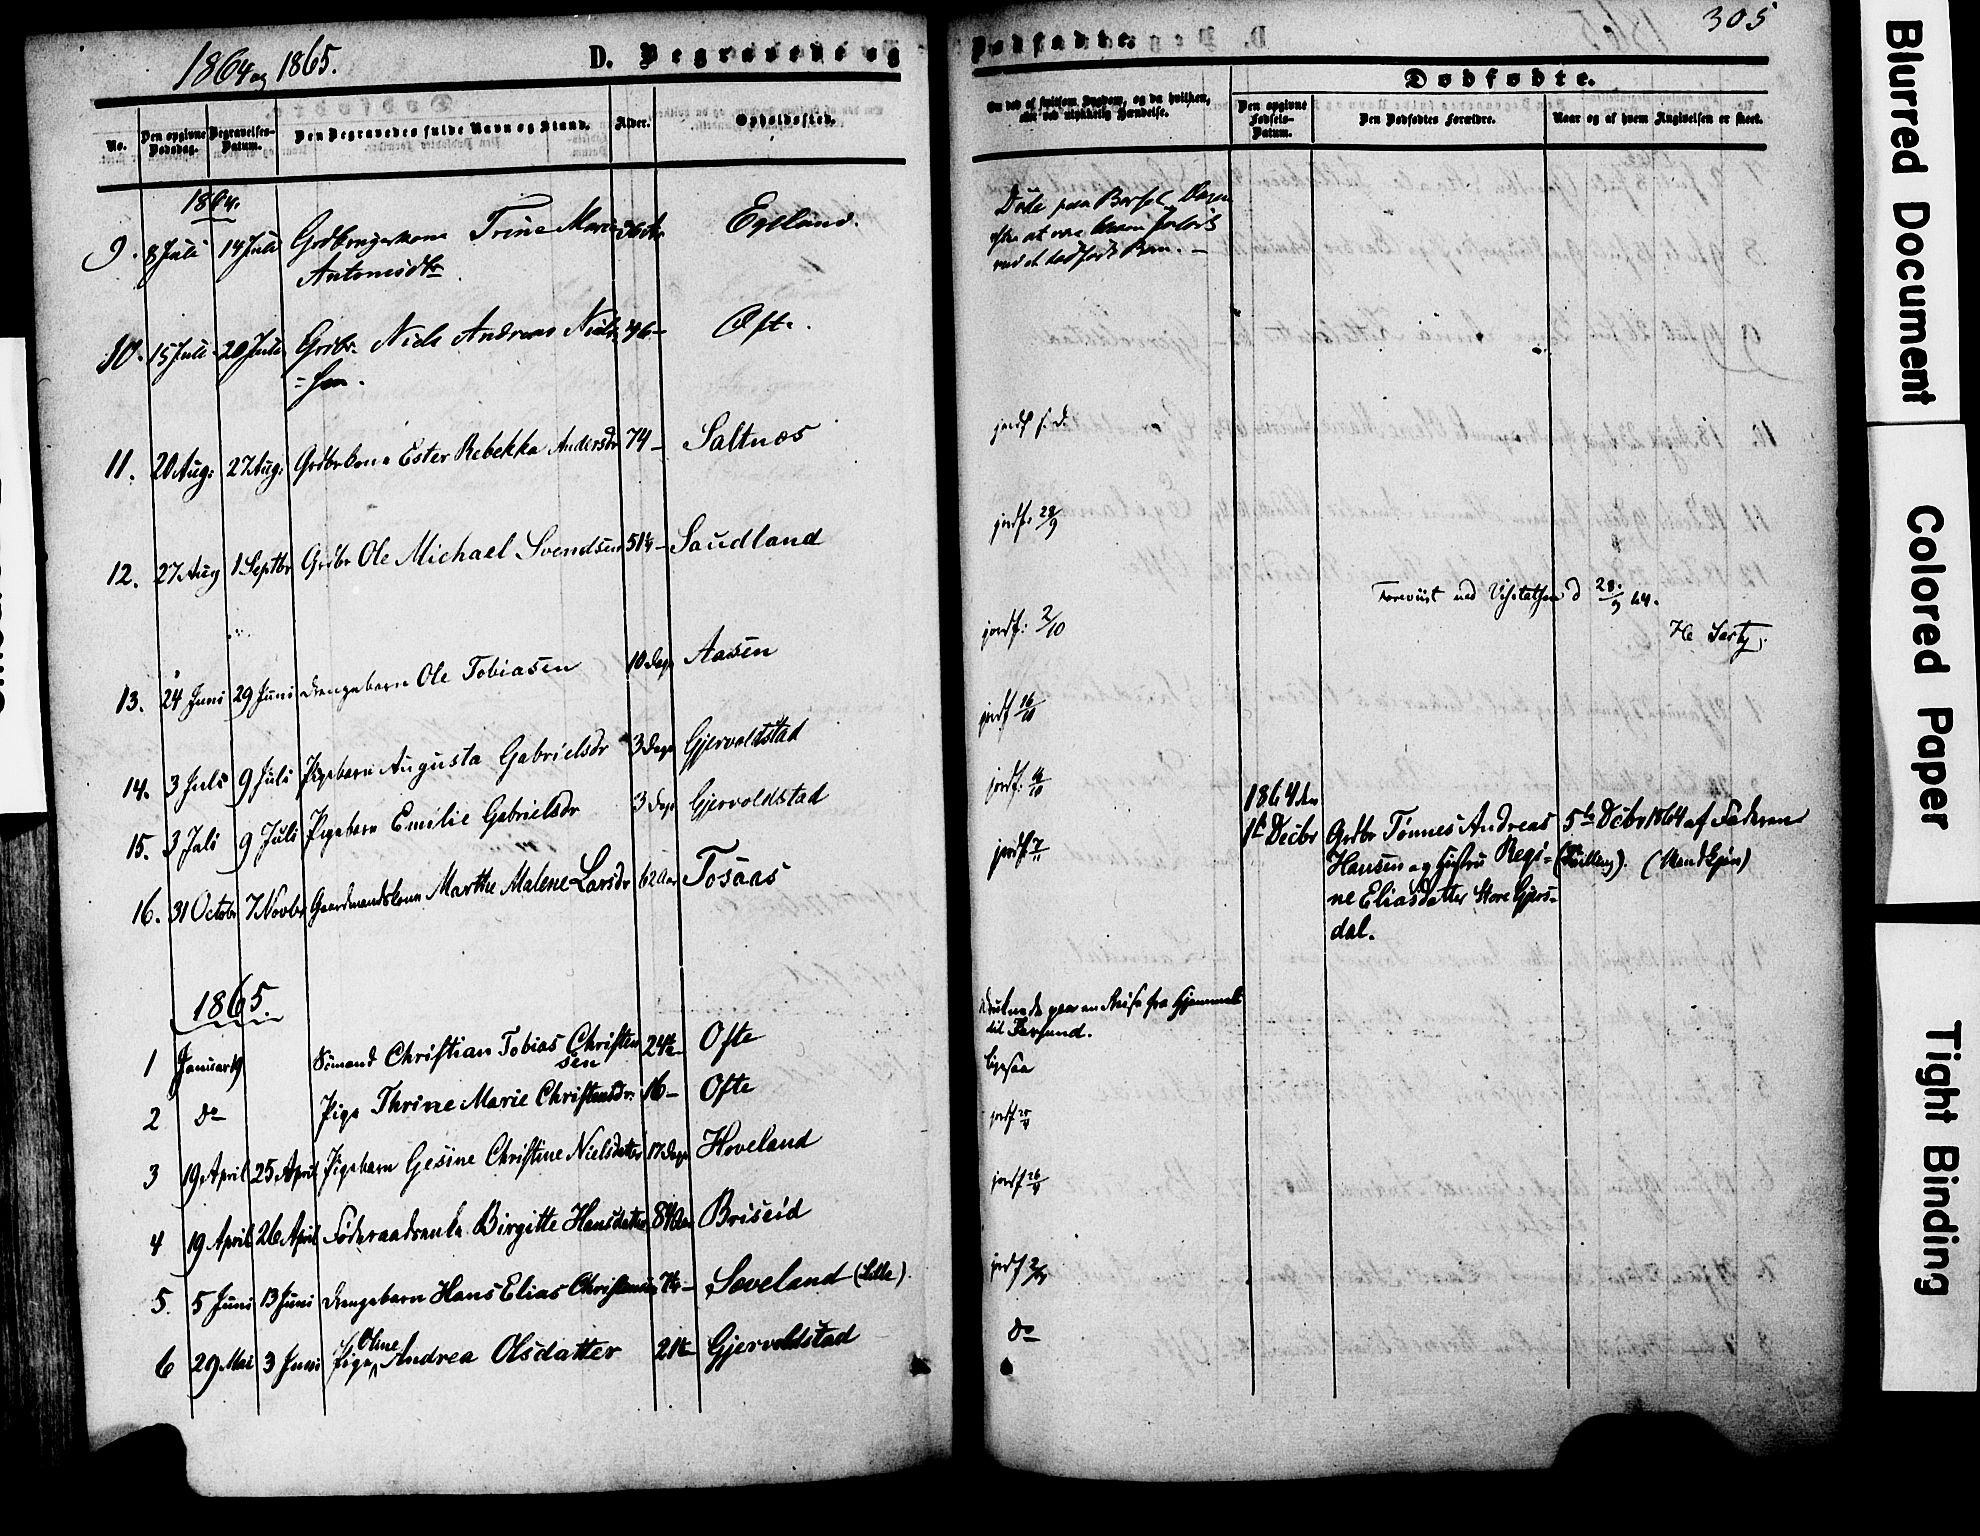 1864 og 1865.
D. Begravede og
No.
Den opgivne Dødsdag.
Begravelses-Datum.
Den Begravedes fulde Navn og Stand.
Alder.
Opholdssted.
1864.
9. 8 Juli 14 Juli Grdbrugerkone Trine Marie 36 Ar Egeland.
Antonisdtr.
10. 15 Juli 20 Juli Grdbr. Niels Andreas Niels 46 – Ofte.
= sen.
11. 20 Aug: 27 Aug: Grdbrkone Ester Rebekka Andersdr 74 – Saltnes
12. 27 Aug 1 Septbr Grdbr Ole Michael Svendsen 51½ – Saudland
13. 24 Juni 29 Juni Drengebarn Ole Tobiasen 10 Dage Aasen
14. 3 Juli 9 Juli Pigebarn Augusta Gabrielsdr 3 Dage Gjervoldstad
15. 3 Juli 9 Juli Pigebarn Emilie Gabrielsdr 3 Dage Gjervoldstad
16. 31 Octobr 7 Novbr Gaardmandskone Marthe Malene Larsdr 62 Aar Tosaas
1865.
1 Januar 19 Sömand Christian Tobias Christen 24 Ofte
sen
2 do Pige Thrine Marie Christensdr. 16 – Ofte
3 19 April 25 April Pigebarn Gesine Christine Nielsdatter 17 Dage Hoveland
4 19 April 26 April Föderaadsenke Birgitte Hansdatter 84 Aar Briseid
5. 5 Juni 13 Juni Drengebarn Hans Elias Christensen Loveland (Lille).
Oline
6 29 Mai 3 Juni Pige Andrea Olsdatter 21 Gjervoldstad
305
Dødfødte.
Om død af smitsom Sygdom, og da hvilken,
eller ved ulykkelig Hændelse.
Dødfødte.
Den opgivne Fødsels-Datum.
Den Dødfødtes Forældre.
Naar og af hvem Angivelsen er skeet.
Døde paa Barsel
efter at være
med et dødfødt Barn. –
jordf.
jordf: 28/9
Foreviist ved Visitatsen d 28/9 64.
jordf: 2/10
jordf 16/10
jordf: 16/10
1864 den
1ste Decbr Grdbr Tönnes Andreas 5te Decbr 1864 af Faderen
jordf 7/11
Hansen og Hustru Regi= (Tvilling). (Mandkjön)
ne Eliasdatter Store Gjers=
dal.
druknede paa en Reise fra Hjemmet
til Farsund.
ligesaa
jordf 25/4
jordf 26/4
jordf
do
Blurred Document
Colored Paper
Tight Binding